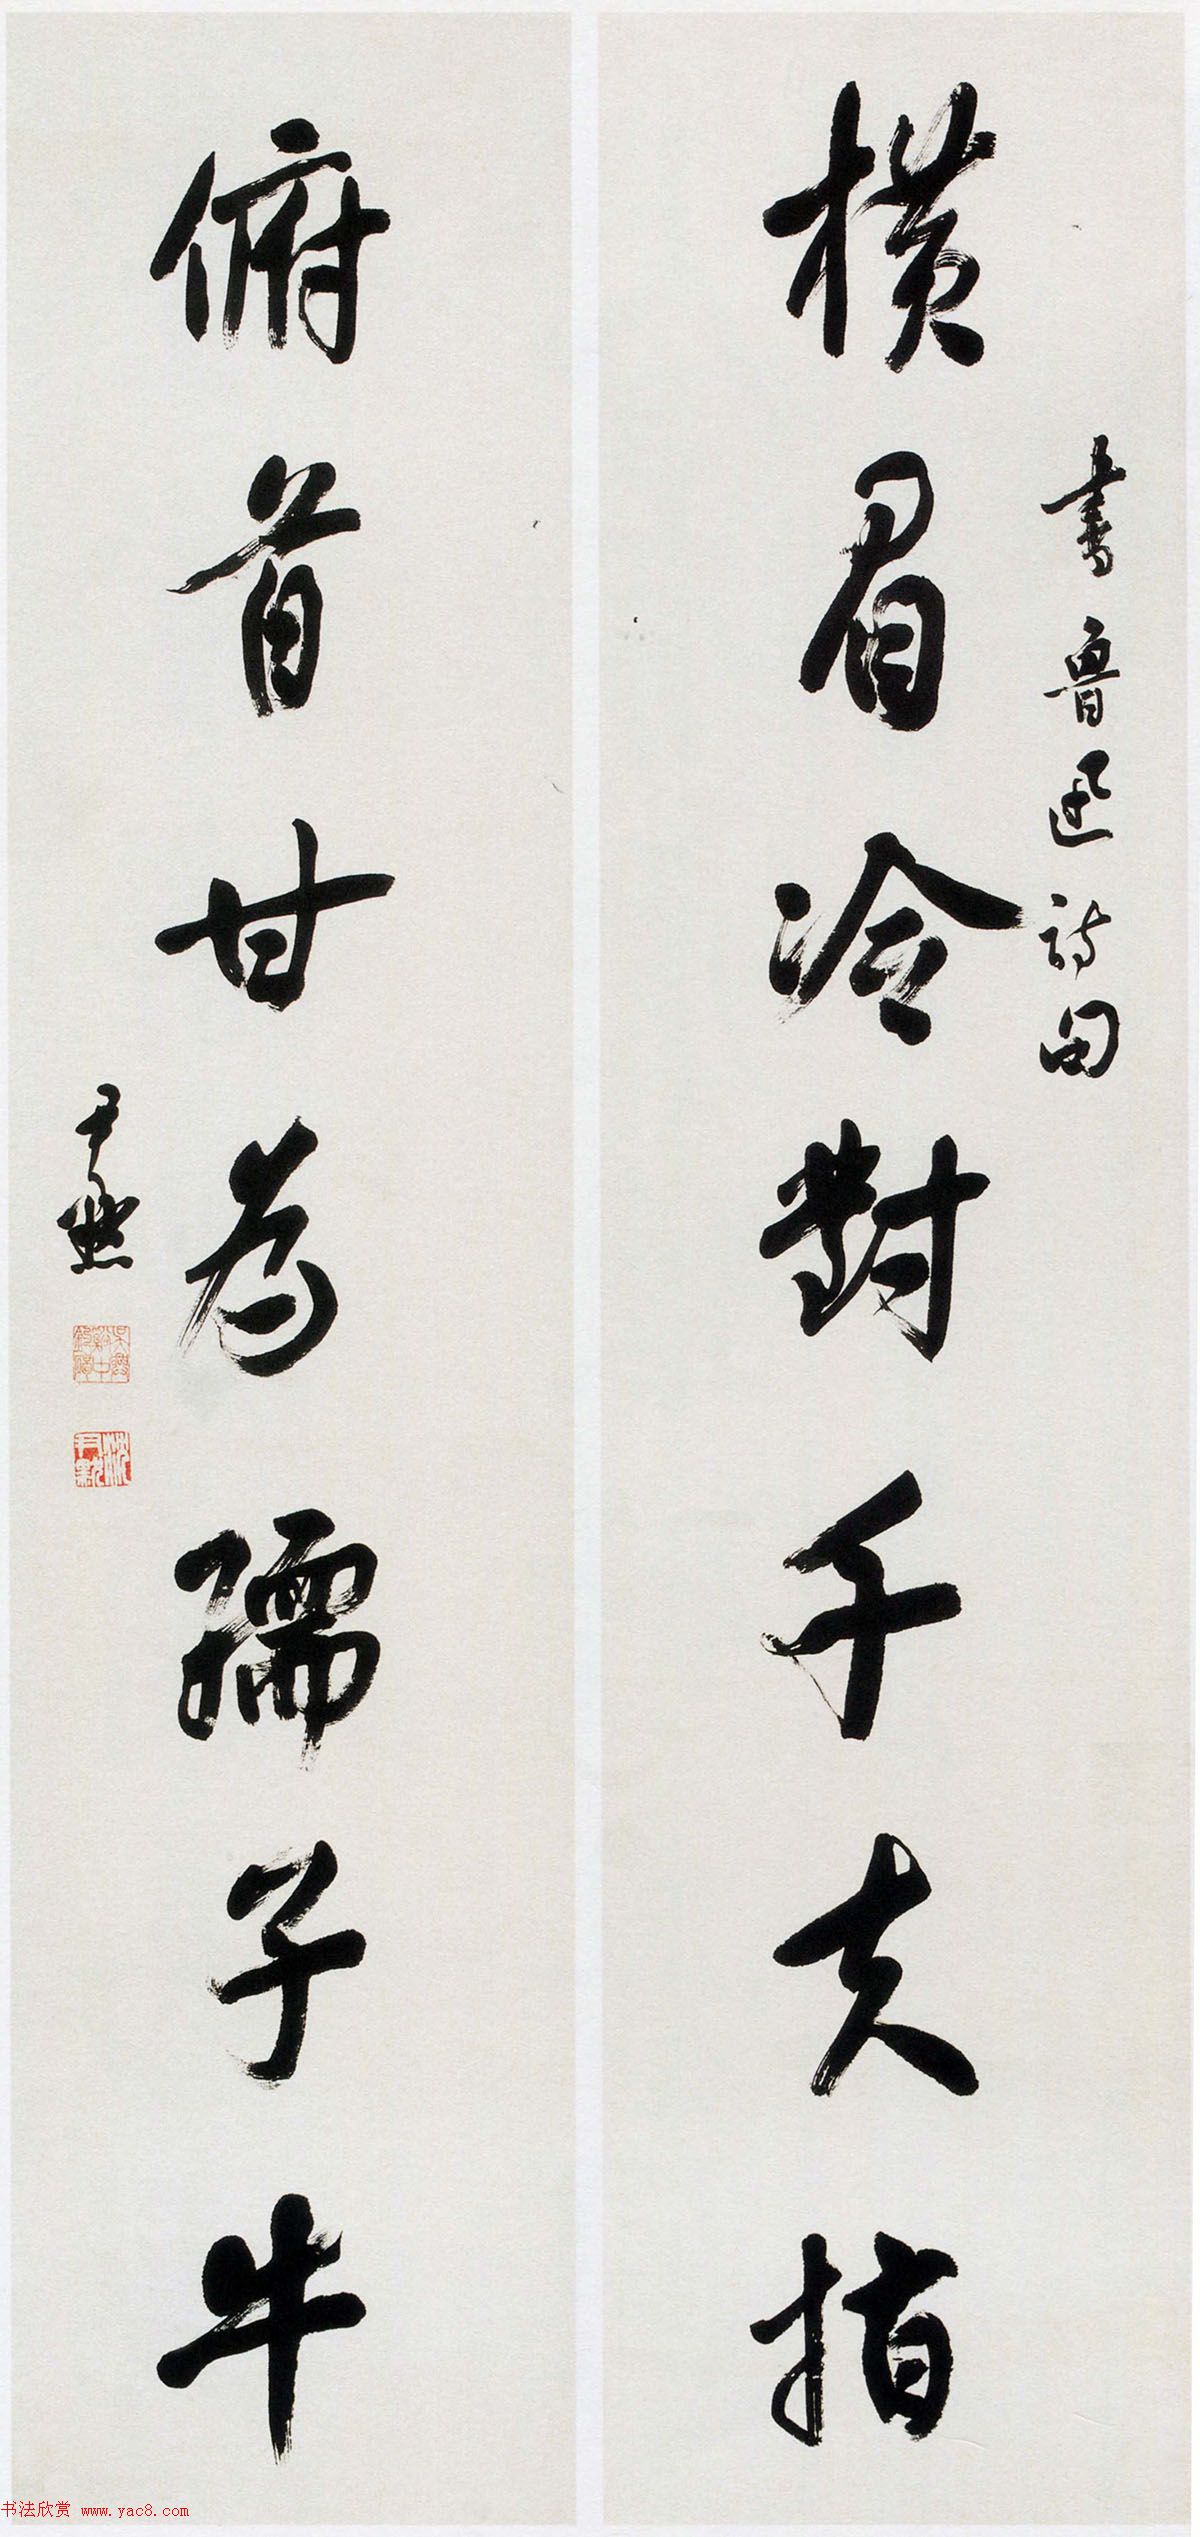 書魯迅詩句
橫眉冷對千夫指
俯首甘為孺子牛
尹默
沈尹默
书法欣赏 www.yac8.com